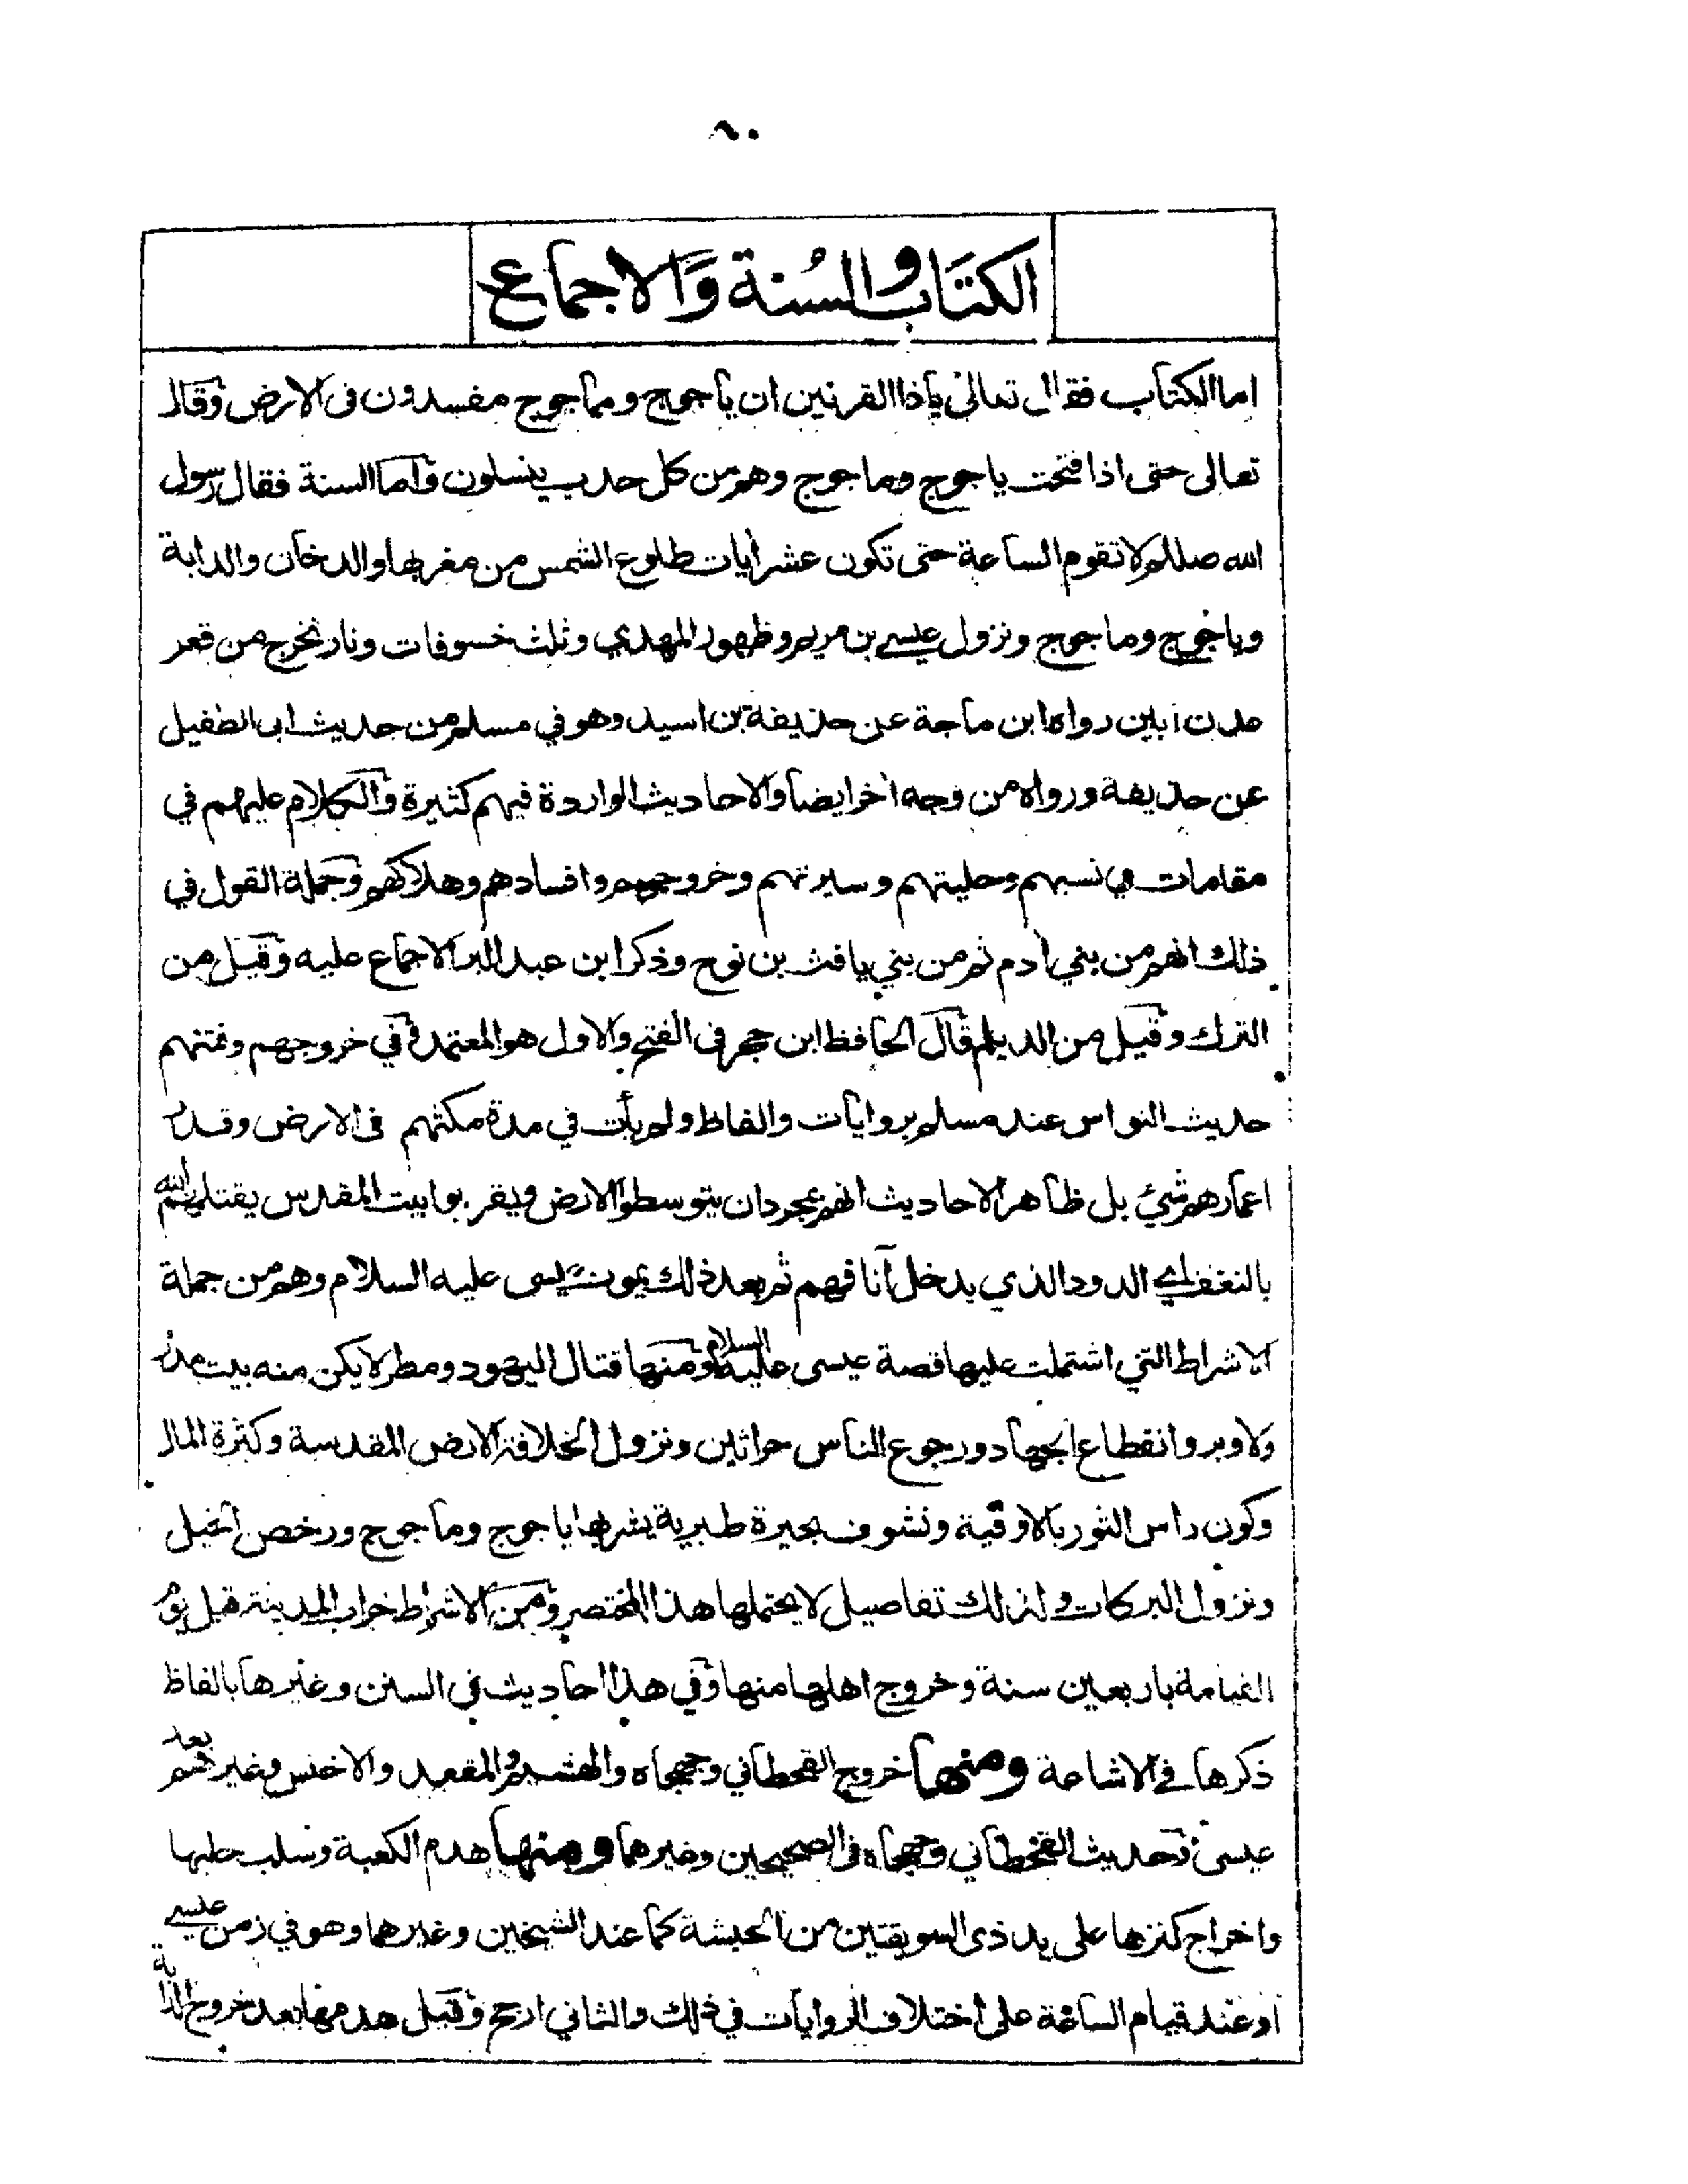 ٨٠
الكتاب والسنة والاجماع
اما الكتاب فقال تعالى ياذا القرنين ان ياجوج وماجوج مفسدون في الارض وقال
تعالى حتى اذا فتحت ياجوج وماجوج وهم من كل حدب ينسلون واما السنة فقال رسول
الله صللم لا تقوم الساعة حتى تكون عشر أيات طلوع الشمس من مغربها والدخان والدابة
وياجوج وماجوج ونزول عيسى بن مريم وظهور المهدي وثلث خسوفات ونار تخرج من قعر
عدن ابين رواه ابن ماجة عن حذيفة بن اسيد وهو في مسلم من حديث ابى الطفيل
عن حذيفة ورواه من وجه أخر ايضا والاحاديث الواردة فيهم كثيرة والكلام عليهم في
مقامات في نسبهم وحليتهم وسيرتهم وخروجهم وافسادهم وهلاكهم وجملة القول في
ذلك انهم من بني أدم ثم من بني يافث بن نوح وذكر ابن عبد البر الاجماع عليه وقيل من
الترك وقيل من الديلم قال الحافظ ابن حجر في الفتح والاول هو المعتمد وفي خروجهم وفتنتهم
حديث النواس عند مسلم بروايات والفاظ ولم يأت في مدة مكثهم في الارض وقدر
اعمارهم شيئ بل ظاهر الاحاديث انهم بمجرد ان يتوسطوا الارض ويقربوا بيت المقدس يقتلهم الله
بالنغف اي الدود الذي يدخل آنافهم ثم بعد ذلك يموت عيسى عليه السلام وهم من جملة
الاشراط التي اشتملت عليها قصة عيسى عليه السلام ومنها قتال اليهود ومطر لا يكن منه بيت مدر
ولا وبر وانقطاع الجهاد ورجوع الناس حراثين ونزول الخلافة الارض المقدسة وكثرة المال
وكون راس الثور بالاوقية ونشوف بحيرة طبرية يشربها ياجوج وماجوج ورخص الخيل
ونزول البركات ولذلك تفاصيل لا يحتملها هذا المختصر ومن الاشراط خراب المدينة قبل يوم
القيامة باربعين سنة وخروج اهلها منها وفي هذا احاديث في السنن وغيرها بالفاظ
ذكرها في الاشاعة ومنها خروج القحطاني وجهجاه والهشيم والمقعد والاخنس وغيرهم بعد
عيسى وحديث القحطاني وجهجاه في الصحيحين وغيرهما ومنها هدم الكعبة وسلب حليها
واخراج كنزها على يد ذى السويقتين من الحبشة كما عند الشيخين وغيرهما وهو في زمن عيسى
او عند قيام الساعة على اختلاف الروايات في ذلك والثاني ارجح وقيل هدمها بعد خروج الدابة